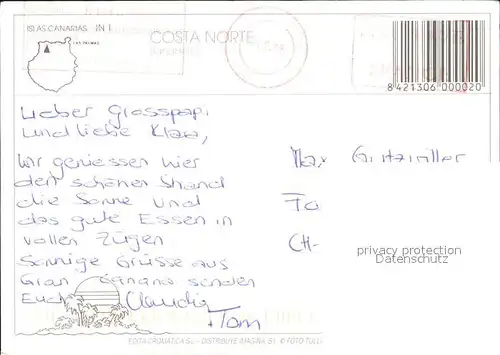 ISLAS CANARIAS IN
LAS PALMAS
COSTA NORTE
8 421306 000020
Lieber Grosspapi
und liebe Klaa,
Wir geniessen hier
den schönen Strand
die Sonne und
das gute Essen in
vollen Zügen
Sonnige Grüsse aus
Gran Canaria senden
Euch Claudia
+Tom
Max Gutzwiller
CH-
privacy protection
Datenschutz
DISTRIBUYE IMAGINA S.L. © FOTO